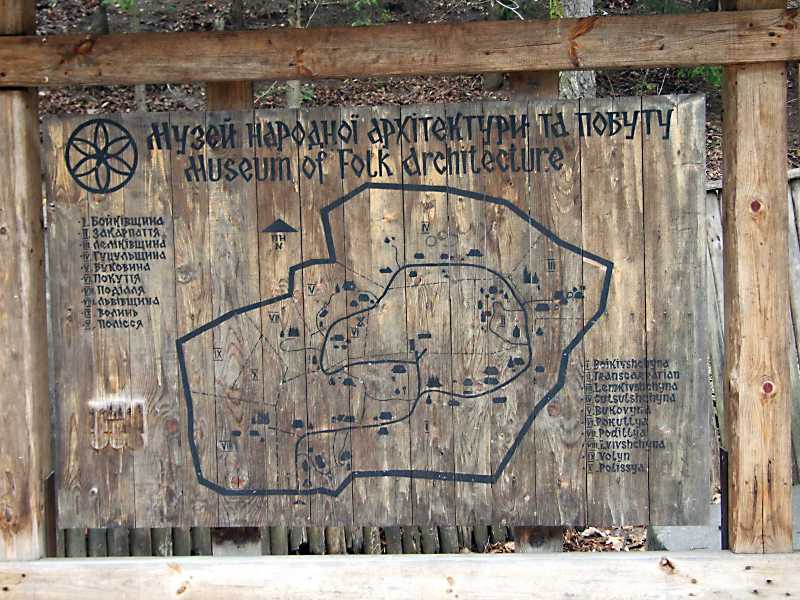 Музей народної архітектури та побуту
Museum of Folk architecture
I. Бойківщина
II. Закарпаття
III. Лемківщина
IV. Гуцульщина
V. Буковина
VI. Покуття
VII. Поділля
VIII. Львівщина
IX. Волинь
X. Полісся
ПН
N
IV
III
V
VI
VII
IX
X
II
VIII
I
I. Boikivshchyna
II. Transcarpatian
III. Lemkivshchyna
IV. Gutsulshchyna
V. Bukovyna
VI. Pokuttya
VII. Podillya
VIII. Lvivshchyna
IX. Volyn
X. Polissya